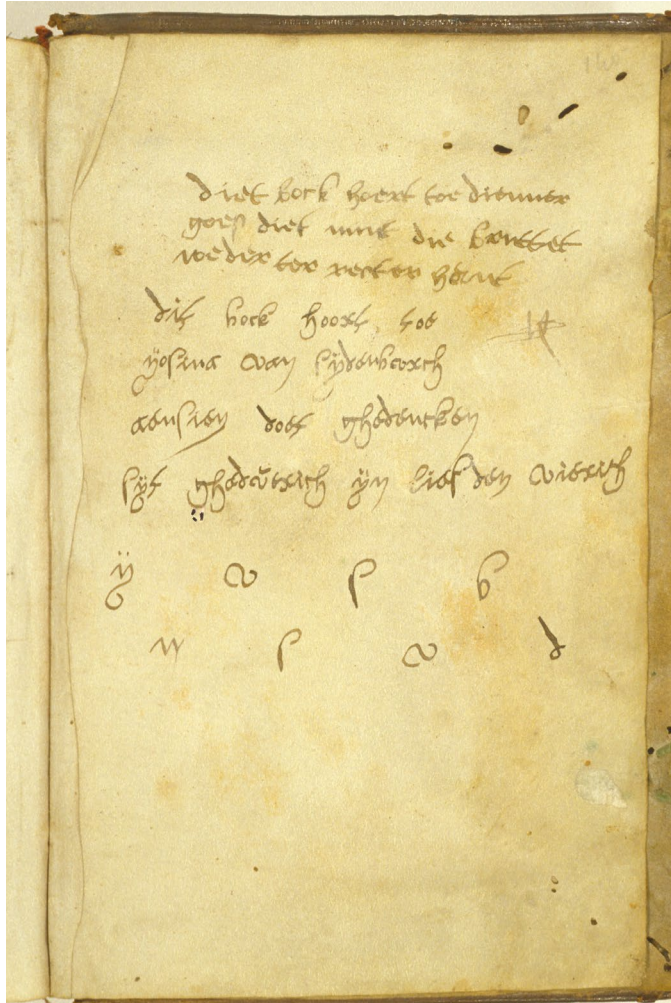 diet bock hoert toe diemer
goes diet vint die brittet
weder ter rector hant
dit bock hoort toe
ÿosina van lÿdenborch
aensien doet ghedencken
sÿt ghedúerich ÿn liefden vierich
ÿ v l b
w l v d